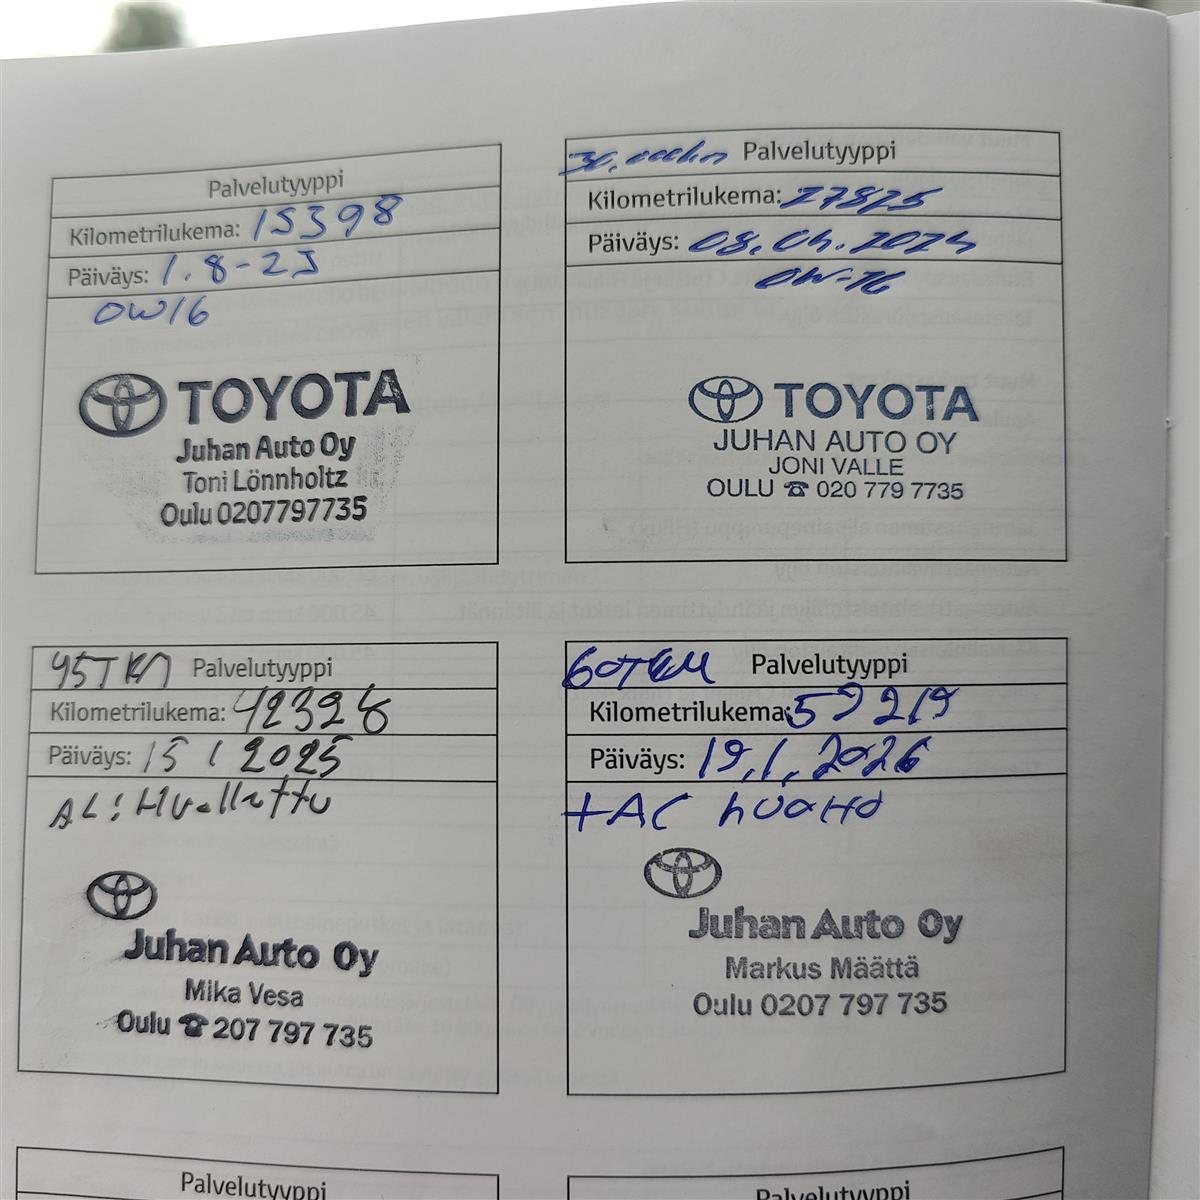 Palvelutyyppi
Kilometrilukema: 15398
Päiväys: 1.8-23
OW16
TOYOTA
Juhan Auto Oy
Toni Lönnholtz
Oulu 0207797735
Palvelutyyppi
Kilometrilukema:
Päiväys: 08.04.2024
OW-16
TOYOTA
JUHAN AUTO OY
JONI VALLE
OULU ☎ 020 779 7735
45TKM Palvelutyyppi
Kilometrilukema: 42328
Päiväys: 15 1 2025
Huollettu
Juhan Auto Oy
Mika Vesa
Oulu ☎ 207 797 735
60TKM Palvelutyyppi
Kilometrilukema: 59219
Päiväys: 19.1.2026
+AC huolto
Juhan Auto Oy
Markus Määttä
Oulu 0207 797 735
Palvelutyyppi
Palvelutyyppi